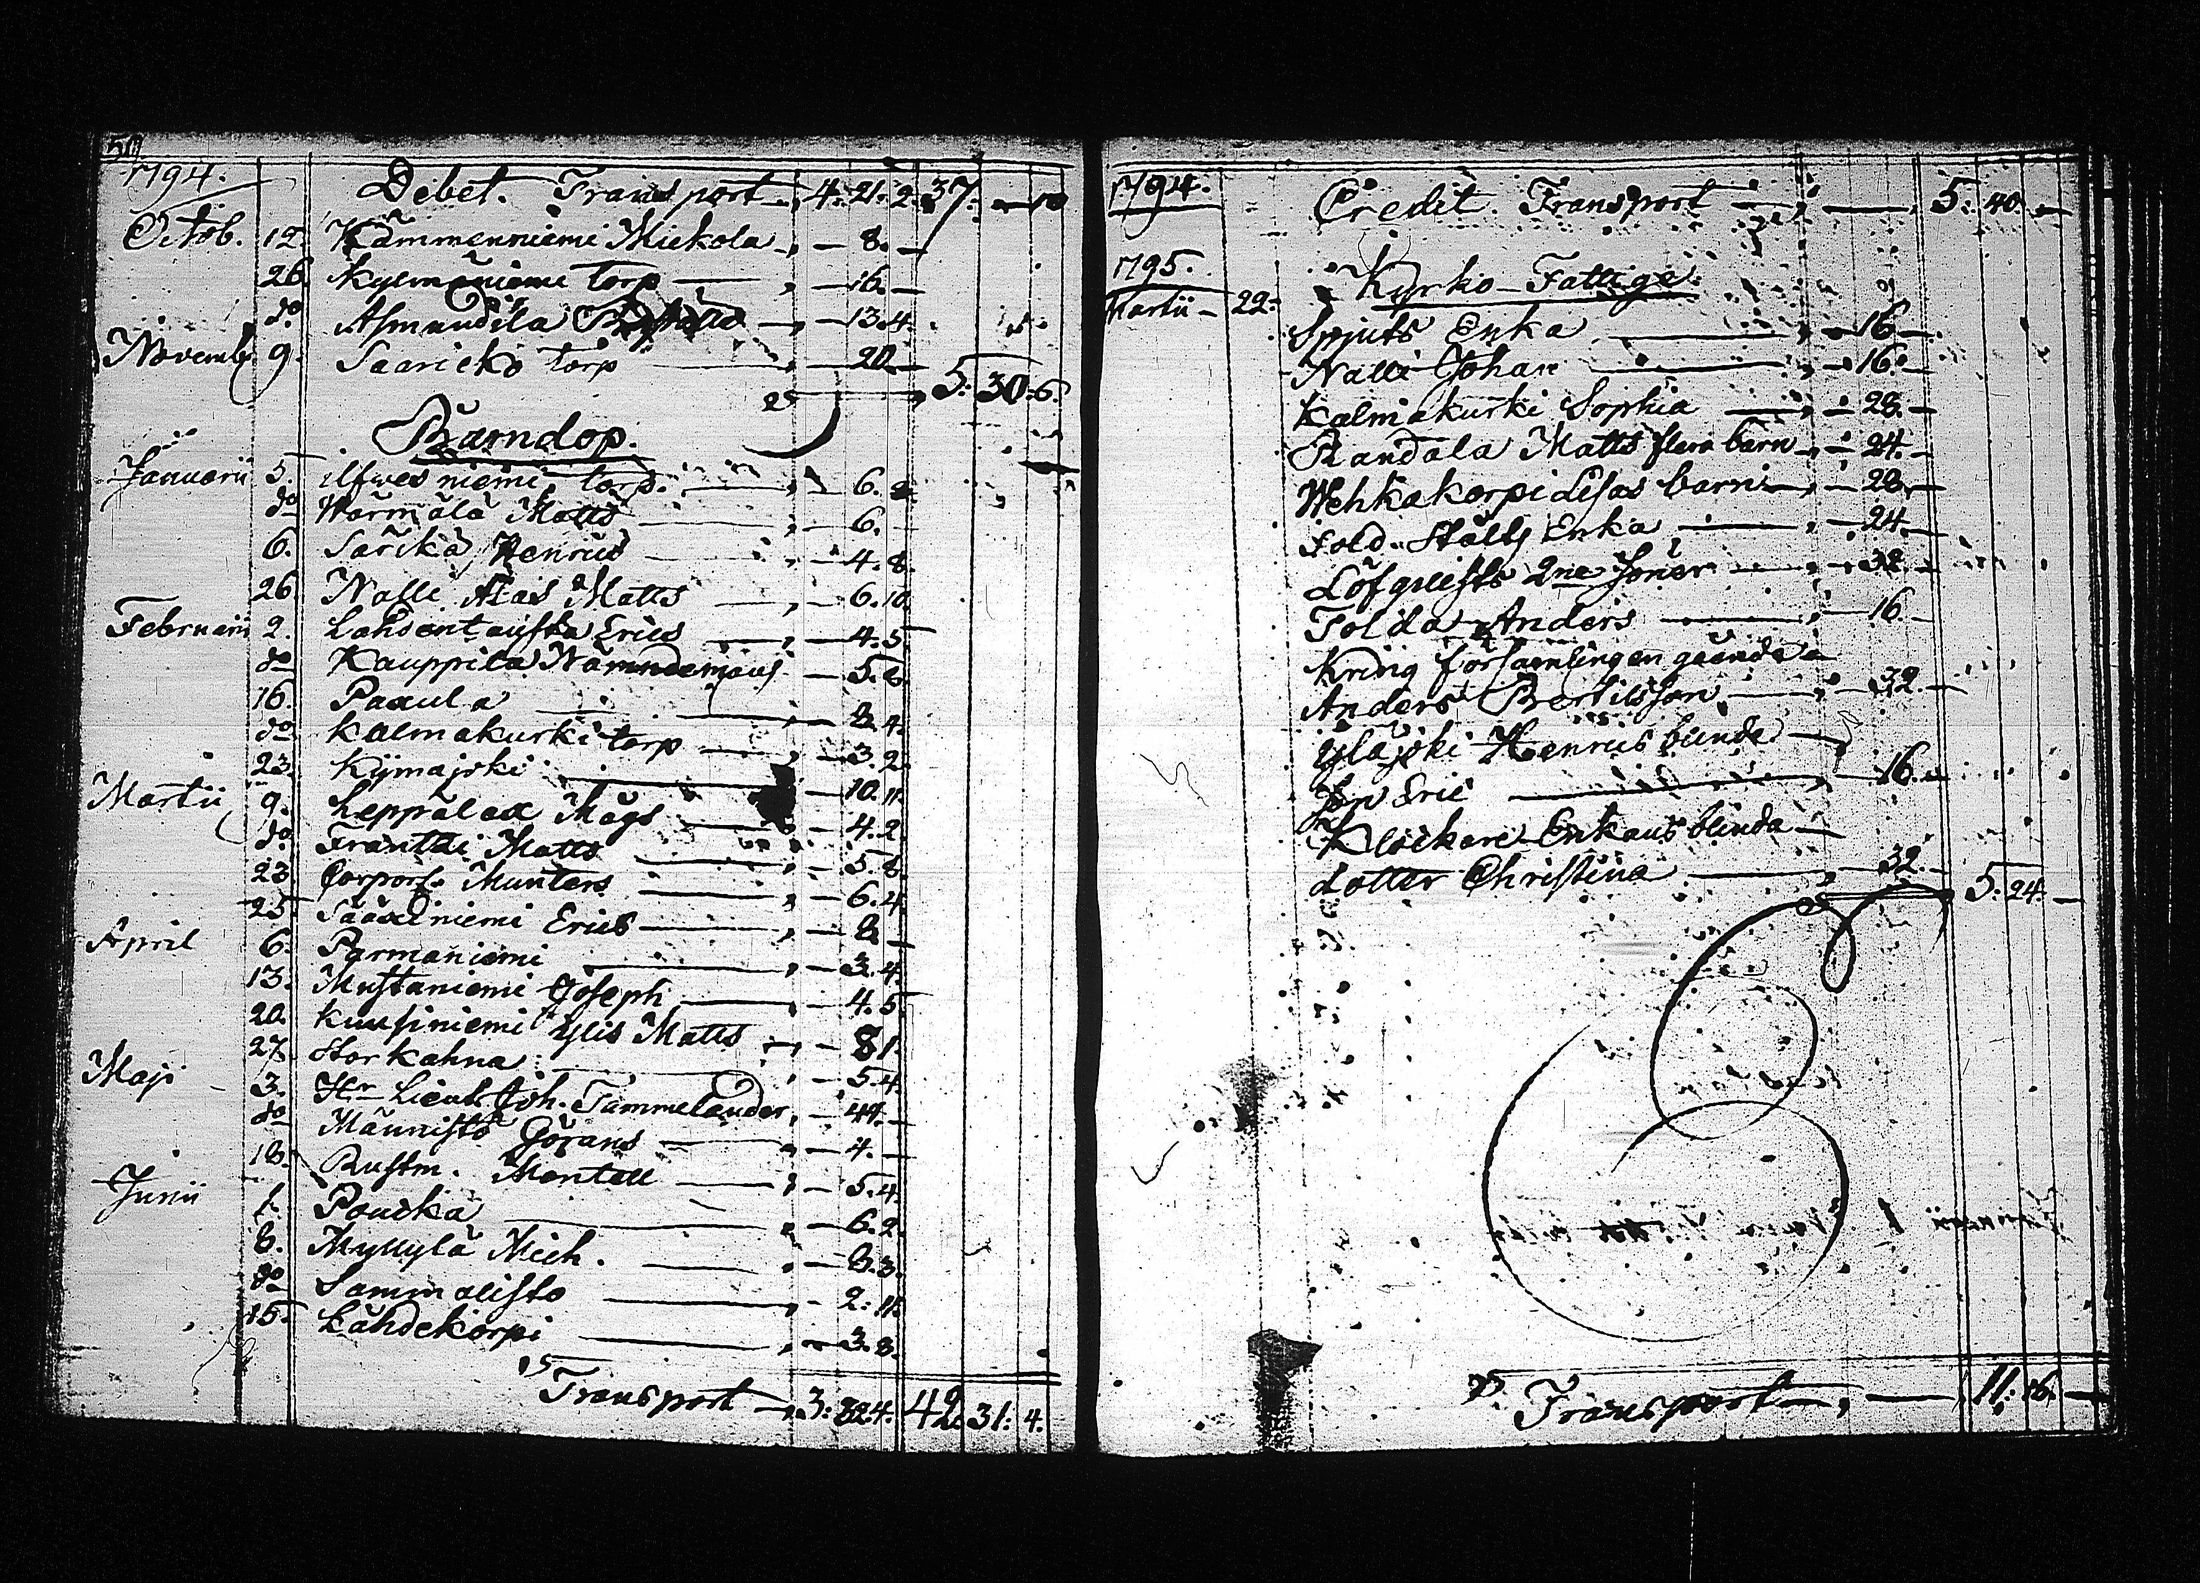 1794.
Debet. Transport 4. 21. 2. 37. — 10
Octob. 12. Kämmenniemi Mickola — 8. —
26. Kylmäniemi torp — 16. —
do Asmundila — 13. 4.
Novemb. 9. Saaricko torp — 20. —
5. 30. 6.
Barndop.
Januarii 5. ilfwesniemi torp. — 6.
do Wärmälä Matts — 6. —
6. Sarika Henrics — 4. 8.
26. Nalle Matts — 6. 10.
Februarii 2. Lahdentausta Erics — 4. 5.
do Kauppila Nämndemans — 5. 8.
16. Paaula — 8. 4.
do Kalmakurki torp — 3. 2.
23. Kijmajoki — 10. 11.
Martii 9. Leppälax Mågs — 4. 2.
do Franttai Matts — 5. 8.
23. Corpor. Munters — 6. 4.
25. Sääxniemi Erics — 8. —
April 6. Parmaniemi — 3. 4.
13. Mustaniemi Joseph — 4. 5.
20. Kuusiniemi Ylis Matts — 8 1.
27. Storkahna — 5. 4.
Maji 3. Hr Lieut. Joh. Tammelander — 44. —
do Männistö Görans — 4. —
18. Rustm. Montell — 5. 4.
Junii 1. Poucka — 6. 2.
8. Myllylä Mich. — 8. 3.
do Sammalisto — 2. 11.
15. Lähdekorpi — 3. 8.
Transport 3. 4. 42 31. 4.
1794. Credit. Transport — 5. 40. —
1795. Kyrko-Fattige
Martii — 22. Spjuts Enka — 16. —
Nalli Johan — 16. —
Kalmakurki Sophia — 28. —
Randala Matts flera barn — 24. —
Wehkakorpi Lisas barn — 28. —
Sold. Stålts Enka — 24. —
Löfquists 2ne Söner — 32. —
Tolda Anders — 16. —
Kring församlingen gående
Anders Bertilsson — 32. —
Yläjoki Henrics blinde
Son Eric — 16. —
Klockare Enkans blinda
dotter Christina — 32. — 5. 24. —
Transport — 11. 16. —